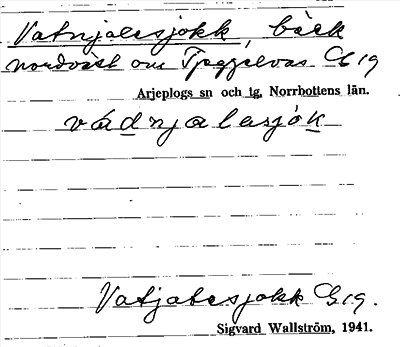 Vatnjalesjokk, bäck
nordväst om Tjeggelvas
Arjeplogs sn och tg, Norrbottens län.
vádnjalasjók
Vatjalesjokk
Sigvard Wallström, 1941.